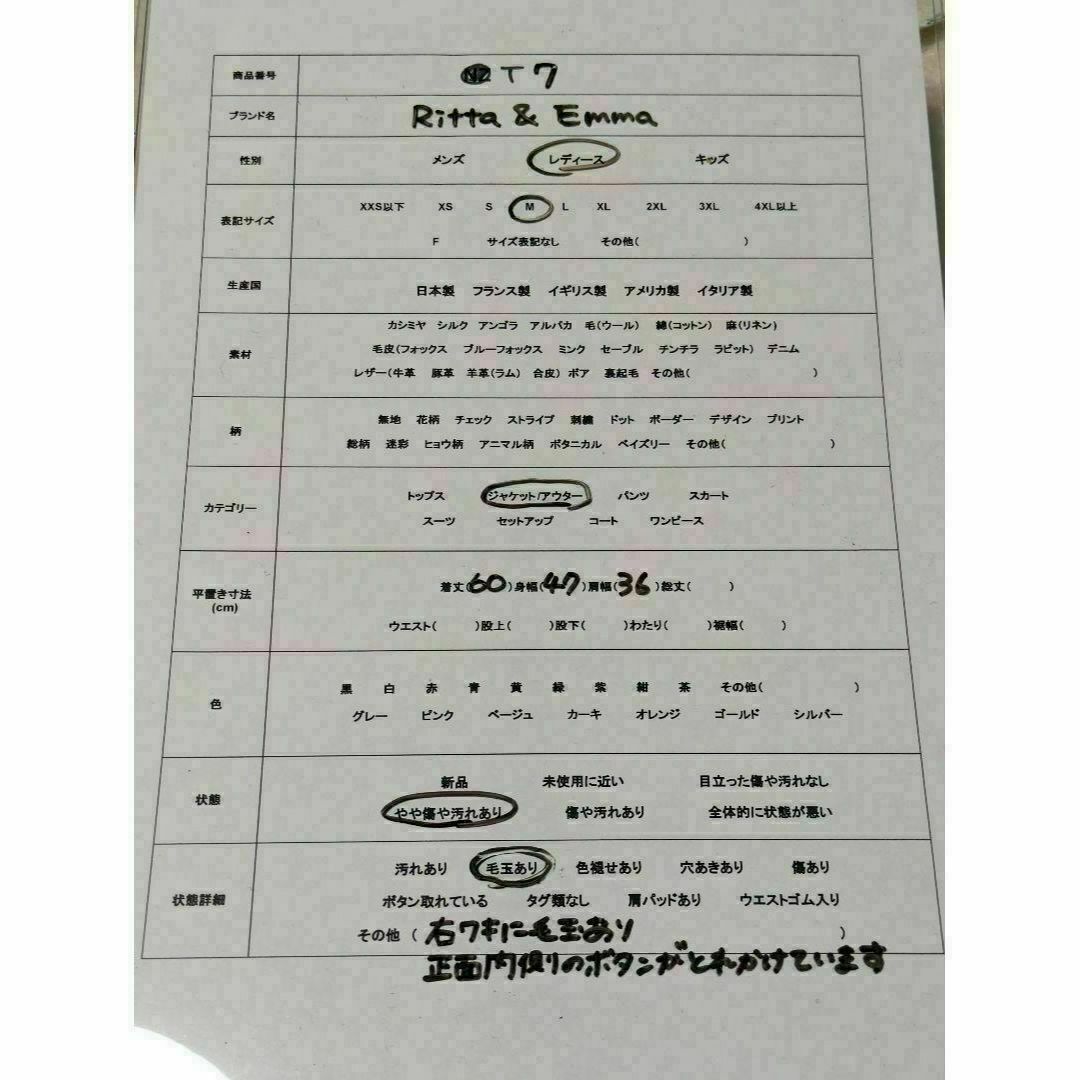 商品番号 NZ T 7
ブランド名 Ritta & Emma
性別 メンズ レディース キッズ
表記サイズ XXS以下 XS S M L XL 2XL 3XL 4XL以上
F サイズ表記なし その他( )
生産国 日本製 フランス製 イギリス製 アメリカ製 イタリア製
素材 カシミヤ シルク アンゴラ アルパカ 毛(ウール) 綿(コットン) 麻(リネン)
毛皮(フォックス ブルーフォックス ミンク セーブル チンチラ ラビット) デニム
レザー(牛革 豚革 羊革(ラム) 合皮) ボア 裏起毛 その他( )
柄 無地 花柄 チェック ストライプ 刺繍 ドット ボーダー デザイン プリント
総柄 迷彩 ヒョウ柄 アニマル柄 ボタニカル ペイズリー その他( )
カテゴリー トップス ジャケット/アウター パンツ スカート
スーツ セットアップ コート ワンピース
平置き寸法 (cm) 着丈(60)身幅(47)肩幅(36)総丈( )
ウエスト( )股上( )股下( )わたり( )裾幅( )
色 黒 白 赤 青 黄 緑 紫 紺 茶 その他( )
グレー ピンク ベージュ カーキ オレンジ ゴールド シルバー
状態 新品 未使用に近い 目立った傷や汚れなし
やや傷や汚れあり 傷や汚れあり 全体的に状態が悪い
状態詳細 汚れあり 毛玉あり 色褪せあり 穴あきあり 傷あり
ボタン取れている タグ類なし 肩パッドあり ウエストゴム入り
その他 ( 右ワキに毛玉あり )
正面内側のボタンがとれかけています